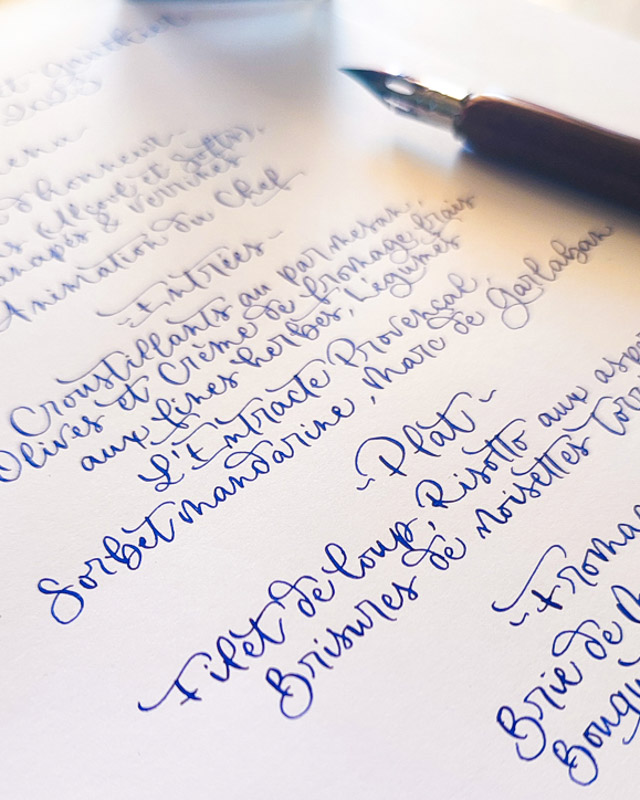 et Gauthier
d'honneur
et Softs,
& verrines
Animation du Chef
~Entrées~
Croustillants au parmesan,
Olives et Crème de fromage frais
aux fines herbes, Légumes
L'Entracte Provençal
Sorbet mandarine, Marc de Garlaban
~Plat~
Filet de loup, Risotto aux
Brisures de noisettes
Brie de